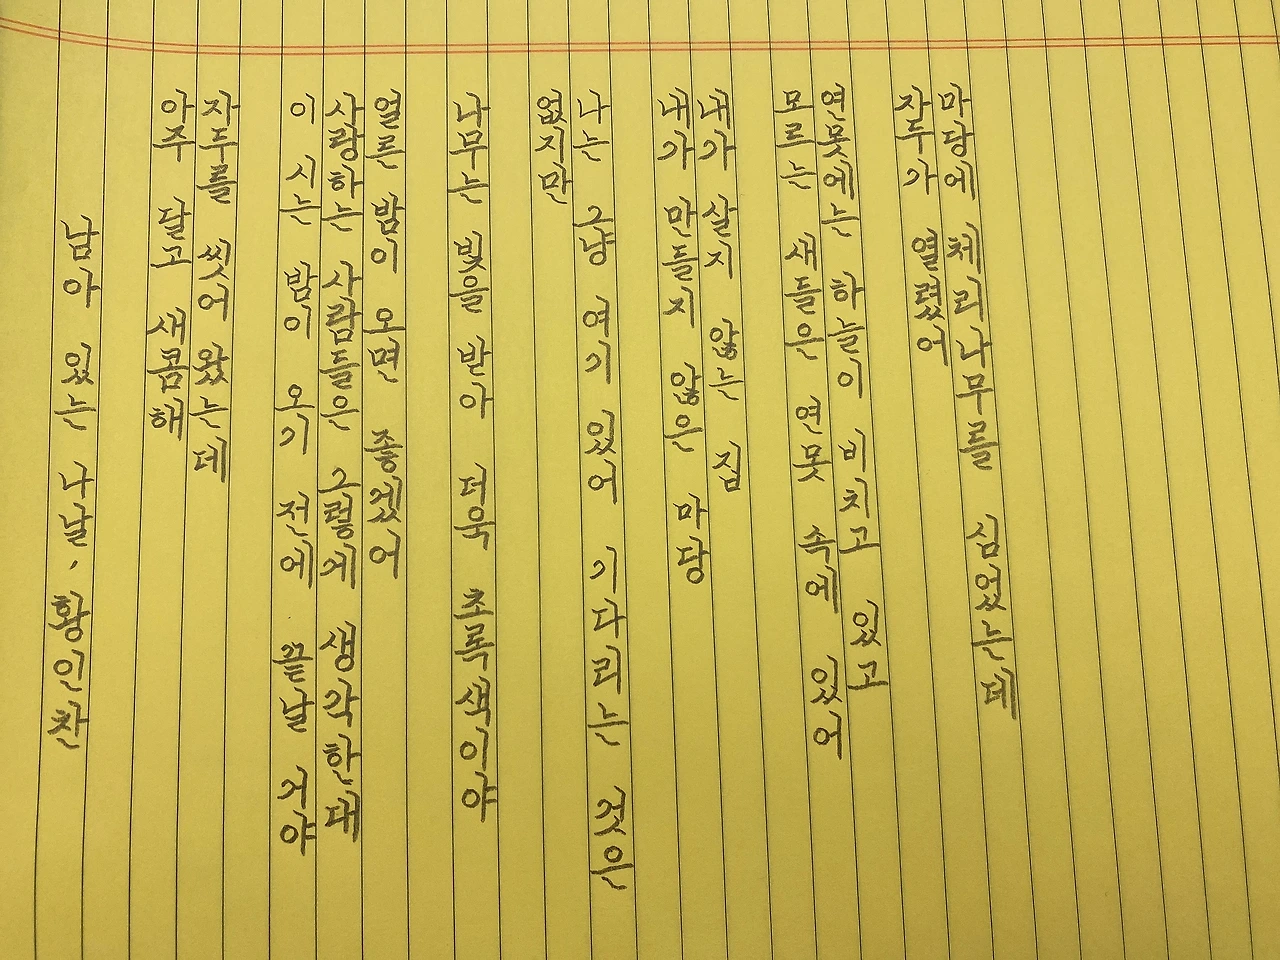 마당에 체리나무를 심었는데
자두가 열렸어
연못에는 하늘이 비치고 있고
모르는 새들은 연못 속에 있어
내가 살지 않는 집
내가 만들지 않은 마당
나는 그냥 여기 있어 기다리는 것은
없지만
나무는 빛을 받아 더욱 초록색이야
얼른 밤이 오면 좋겠어
사랑하는 사람들은 그렇게 생각한대
이 시는 밤이 오기 전에 끝날 거야
자두를 씻어 왔는데
아주 달고 새콤해
남아 있는 나날, 황인찬